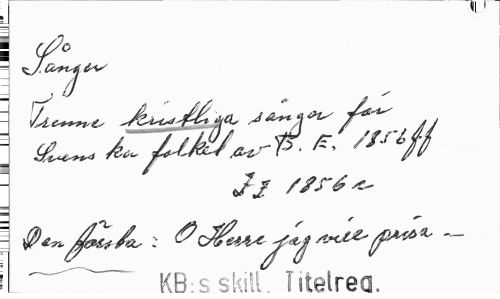 Sånger
Trenne kristliga sånger för
Svenska folket av B. E. 1856 ff
ZZ 1856 r
Den första: O Herre jag vill prisa —
KB:s skill. Titelreg.